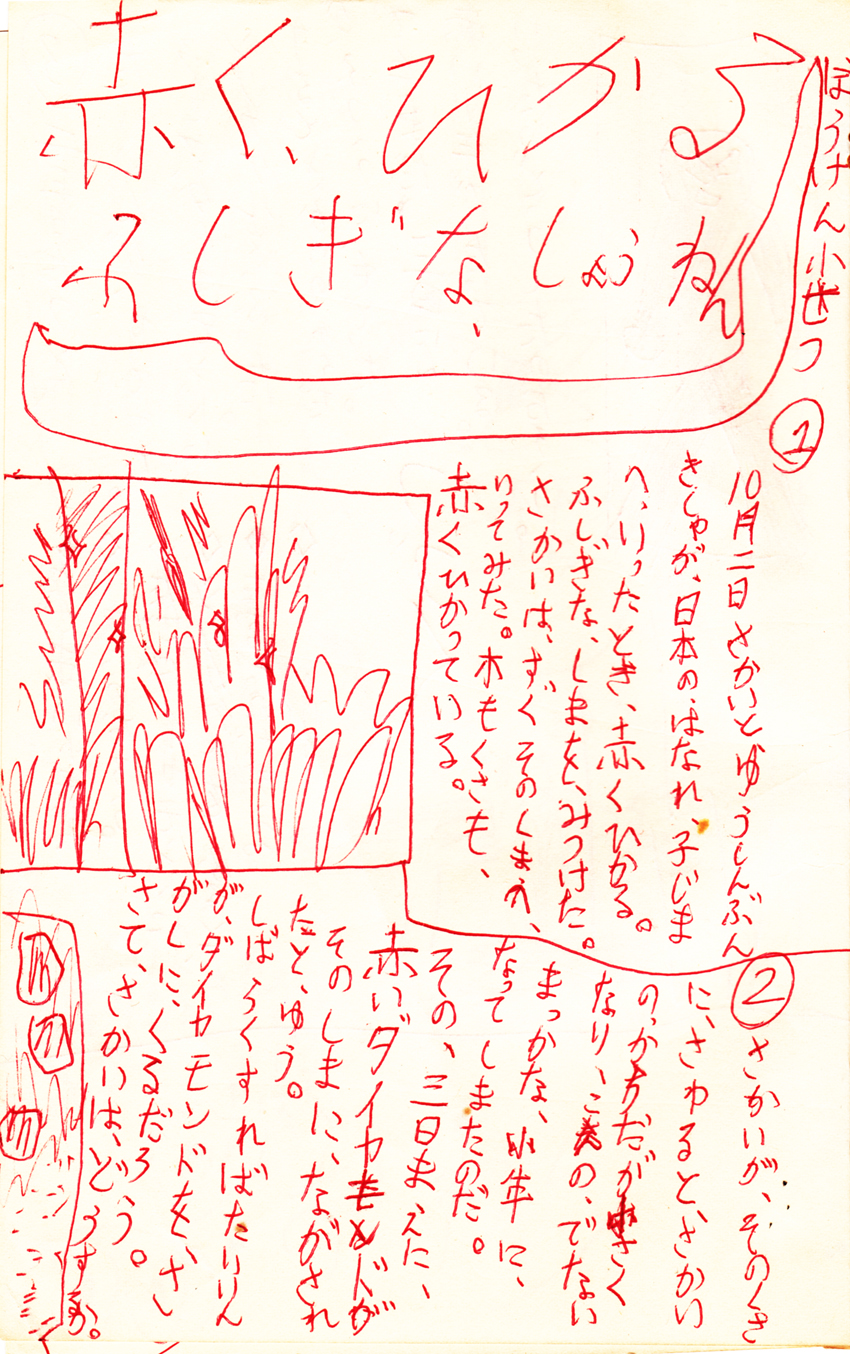 ぼうけん小せつ
赤く、ひかる
ふしぎな、しょうねん
①
10月二日さかいとゆうしんぶん
きしゃが、日本の、はなれ、子じま
へ、いったとき、赤くひかる。
ふしぎな、しまを、みつけた。
さかいは、すぐそのしまえ、
いってみた。木もくさも、
赤くひかっている。
②
さかいが、そのくさ
に、さわると、さかい
の、からだが小さく
なり、この、でない
まっかな、小年に、
なってしまたのだ。
その、三日まえに、
赤いダイヤモンドが
そのしまに、ながされ
たと、ゆう。
しばらくすればたいりん
が、ダイヤモンドを、さい
がしに、くるだろう。
さて、さかいは、どうするか。